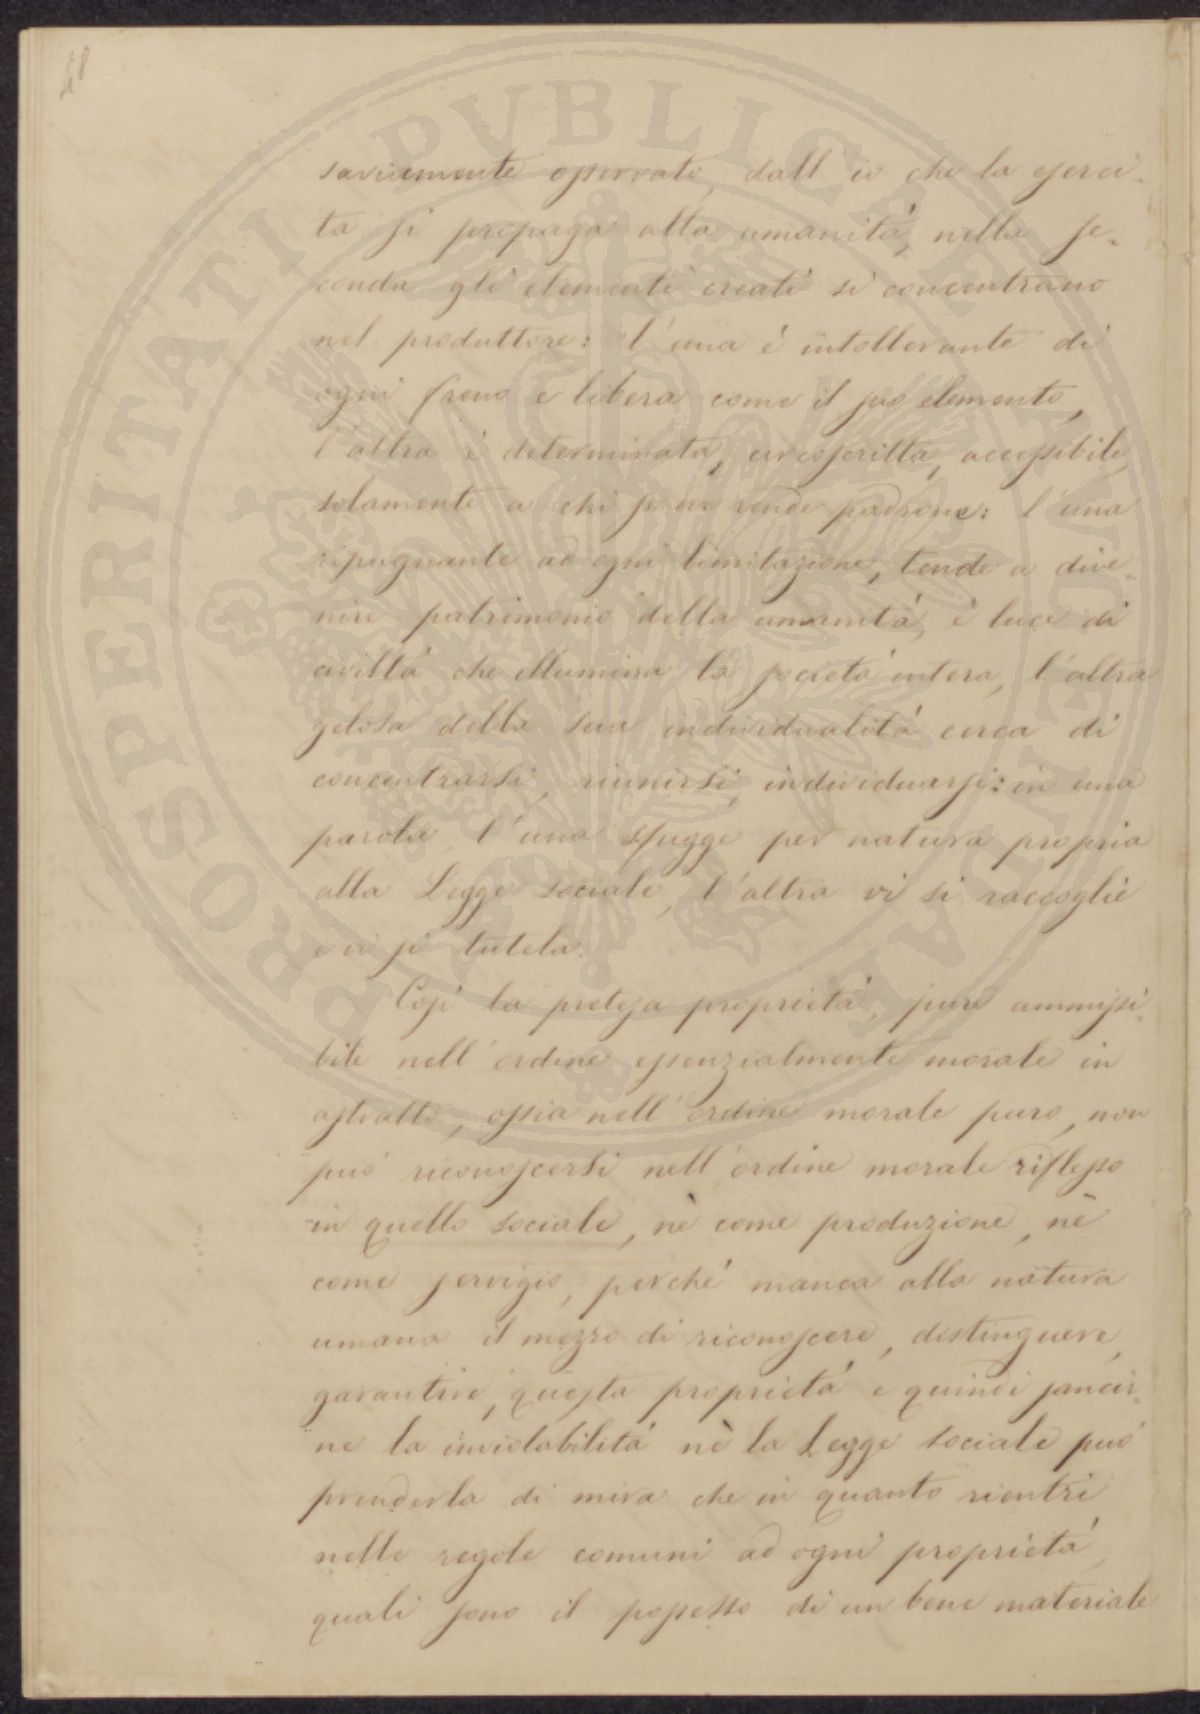 48
saviamente osservato, dall'io che la eserci-
ta si propaga alla umanità, nella se-
conda gli elementi creati si concentrano
nel produttore: l'una è intollerante di
ogni freno e libera come il suo elemento,
l'altra è determinata, circoscritta, accessibile
solamente a chi se ne rende padrone: l'una
ripugnante ad ogni limitazione, tende a dive-
nire patrimonio della umanità, è luce di
civiltà che illumina la società intera, l'altra
gelosa della sua individualità cerca di
concentrarsi, riunirsi, individuarsi: in una
parola l'una sfugge per natura propria
alla Legge sociale, l'altra vi si raccoglie
e vi si tutela.
Così la pretesa proprietà, pure ammissi-
bile nell'ordine essenzialmente morale in
astratto, ossia nell'ordine morale puro, non
può riconoscersi nell'ordine morale riflesso
in quello sociale, nè come produzione, nè
come servigio, perché manca alla natura
umana il mezzo di riconoscere, distinguere,
garantire, questa proprietà e quindi sancir-
ne la inviolabilità nè la Legge sociale può
prenderla di mira che in quanto rientri
nelle regole comuni ad ogni proprietà,
quali sono il possesso di un bene materiale
PROSPERITATI PUBLICAE